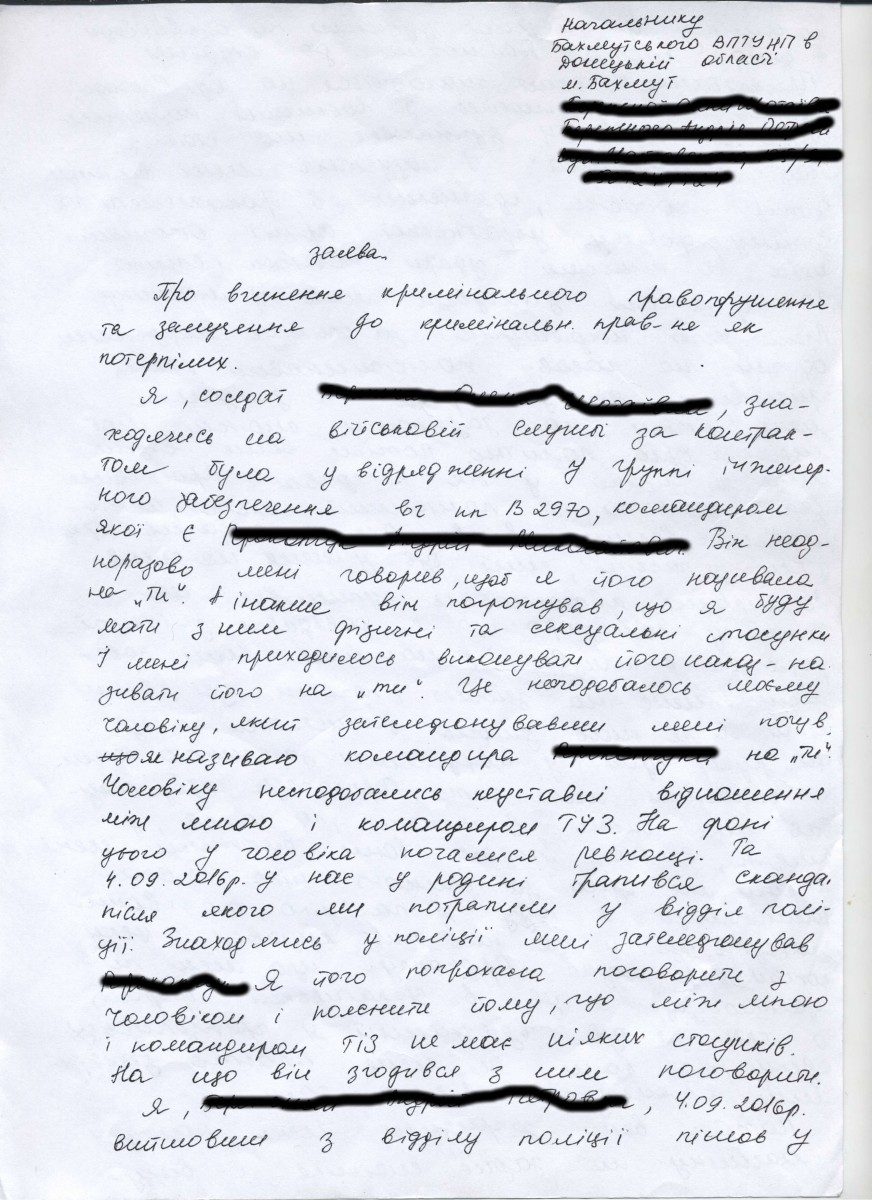 Начальнику
Бахмутського ВПТУНП в
Донецькій області
м. Бахмут
заява.
Про вчинення кримінального правопорушення
та залучення до кримінальн. прав-не як
потерпілих.
Я, солдат , зна-
ходячись на військовій службі за контрак-
том була у відрядженні у группі інженер-
ного забезпечення вч пп В2970, командиром
якої є Він неод-
норазово мені говорив, щоб я його називала
на „ти". А інакше він погрожував, що я буду
мати з ним фізичні та сексуальні стосунки
І мені приходилось виконувати його наказ - на
зивати його на „ти". Це неподобалось моєму
чоловіку, який зателефонувавши мені почув,
що як називаю командира на „ти".
Чоловіку несподобались неуставні відношення
між мною і командиром ТУЗ. На фоні
цього у чоловіка почалися ревнощі. Та
4.09.2016р. у нас у родині трапився скандал
після якого ми потрапили у відділ полі-
ції. Знаходячись у поліції мені зателефонував
Я його попрохала поговорити з
чоловіком і пояснити йому, що між мною
і командиром ТІЗ немає ніяких стосунків.
На що він згодився з ним поговорити.
Я, , 4.09.2016р.
вийшовши з відділу поліції пішов у